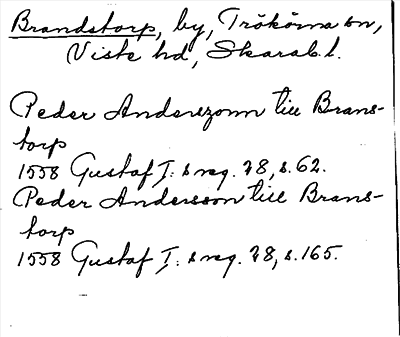 Brandstorp, by, Trökörna sn,
Viste hd, Skarab.l.
Peder Anderszonn till Brans-
torp
1558 Gustaf I:s reg. 28, s. 62.
Peder Andersson till Brans-
torp
1558 Gustaf I:s reg. 28, s. 165.